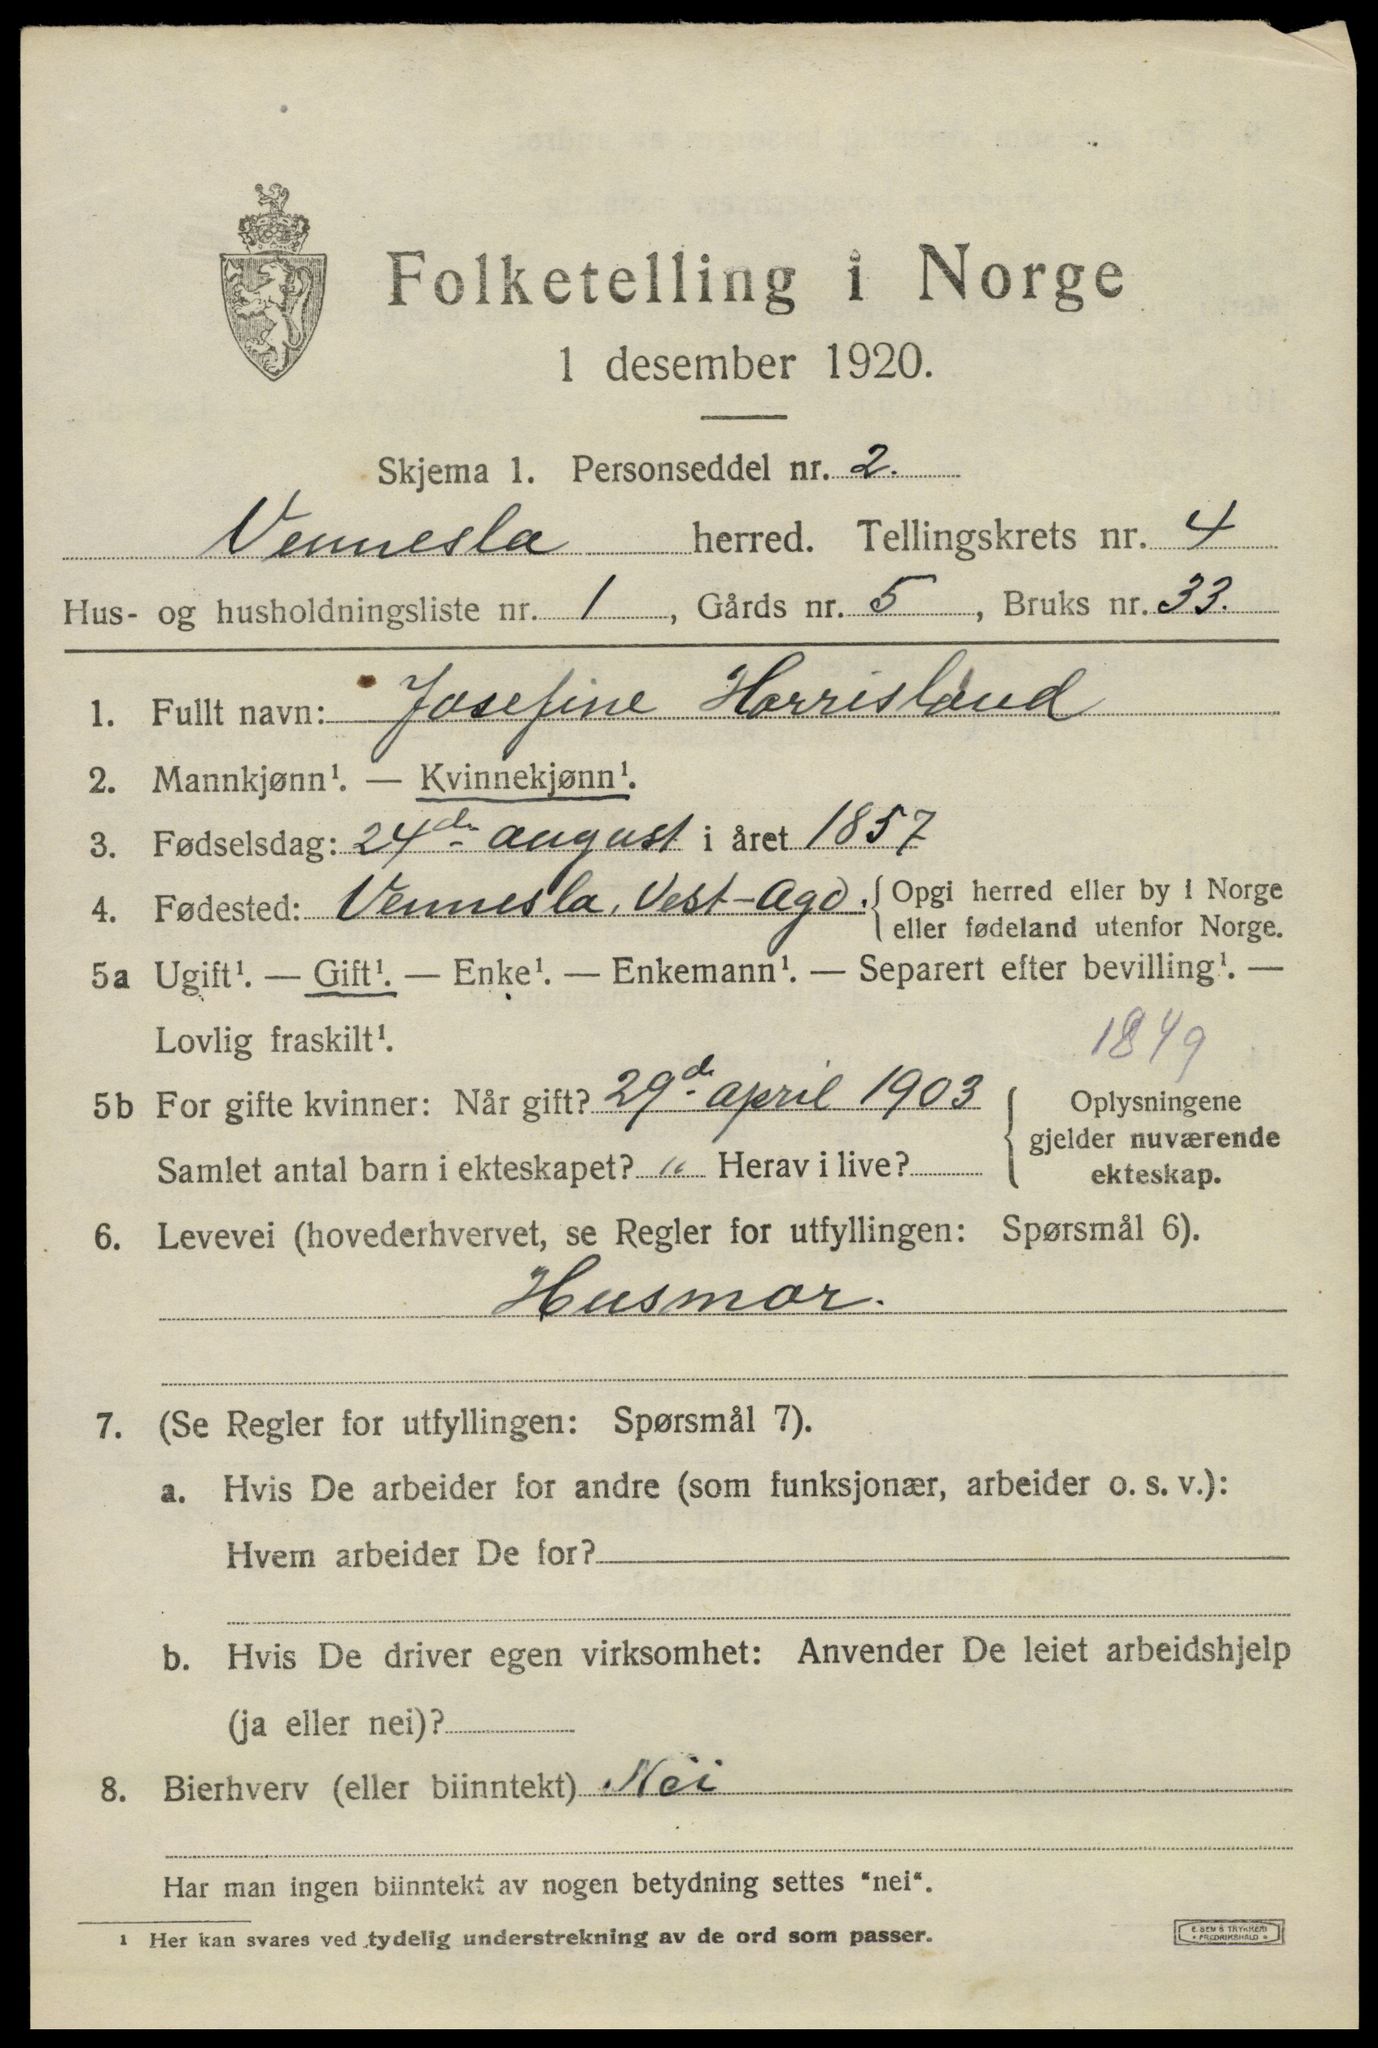 Folketelling i Norge
1 desember 1920.
Skjema 1. Personseddel nr. 2.
Vennesla herred. Tellingskrets nr. 4
Hus- og husholdningsliste nr. 1, Gårds nr. 5, Bruks nr. 33.
1. Fullt navn: Josefine Horrisland
2. Mannkjønn¹. — Kvinnekjønn¹.
3. Fødselsdag: 24de august i året 1857
4. Fødested: Vennesla, Vest-Agd. { Opgi herred eller by i Norge
eller fødeland utenfor Norge.
5a Ugift¹. — Gift¹. — Enke¹. — Enkemann¹. — Separert efter bevilling¹. —
Lovlig fraskilt¹.
1849
5b For gifte kvinner: Når gift? 29de april 1903
Samlet antal barn i ekteskapet? " Herav i live?
Oplysningene
gjelder nuværende
ekteskap.
6. Levevei (hovederhvervet, se Regler for utfyllingen: Spørsmål 6).
Husmor.
7. (Se Regler for utfyllingen: Spørsmål 7).
a. Hvis De arbeider for andre (som funksjonær, arbeider o. s. v.):
Hvem arbeider De for?
b. Hvis De driver egen virksomhet: Anvender De leiet arbeidshjelp
(ja eller nei)?
8. Bierhverv (eller biinntekt) Nei
Har man ingen biinntekt av nogen betydning settes "nei".
¹ Her kan svares ved tydelig understrekning av de ord som passer.
E. SEM'S TRYKKERI
FREDRIKSHALD